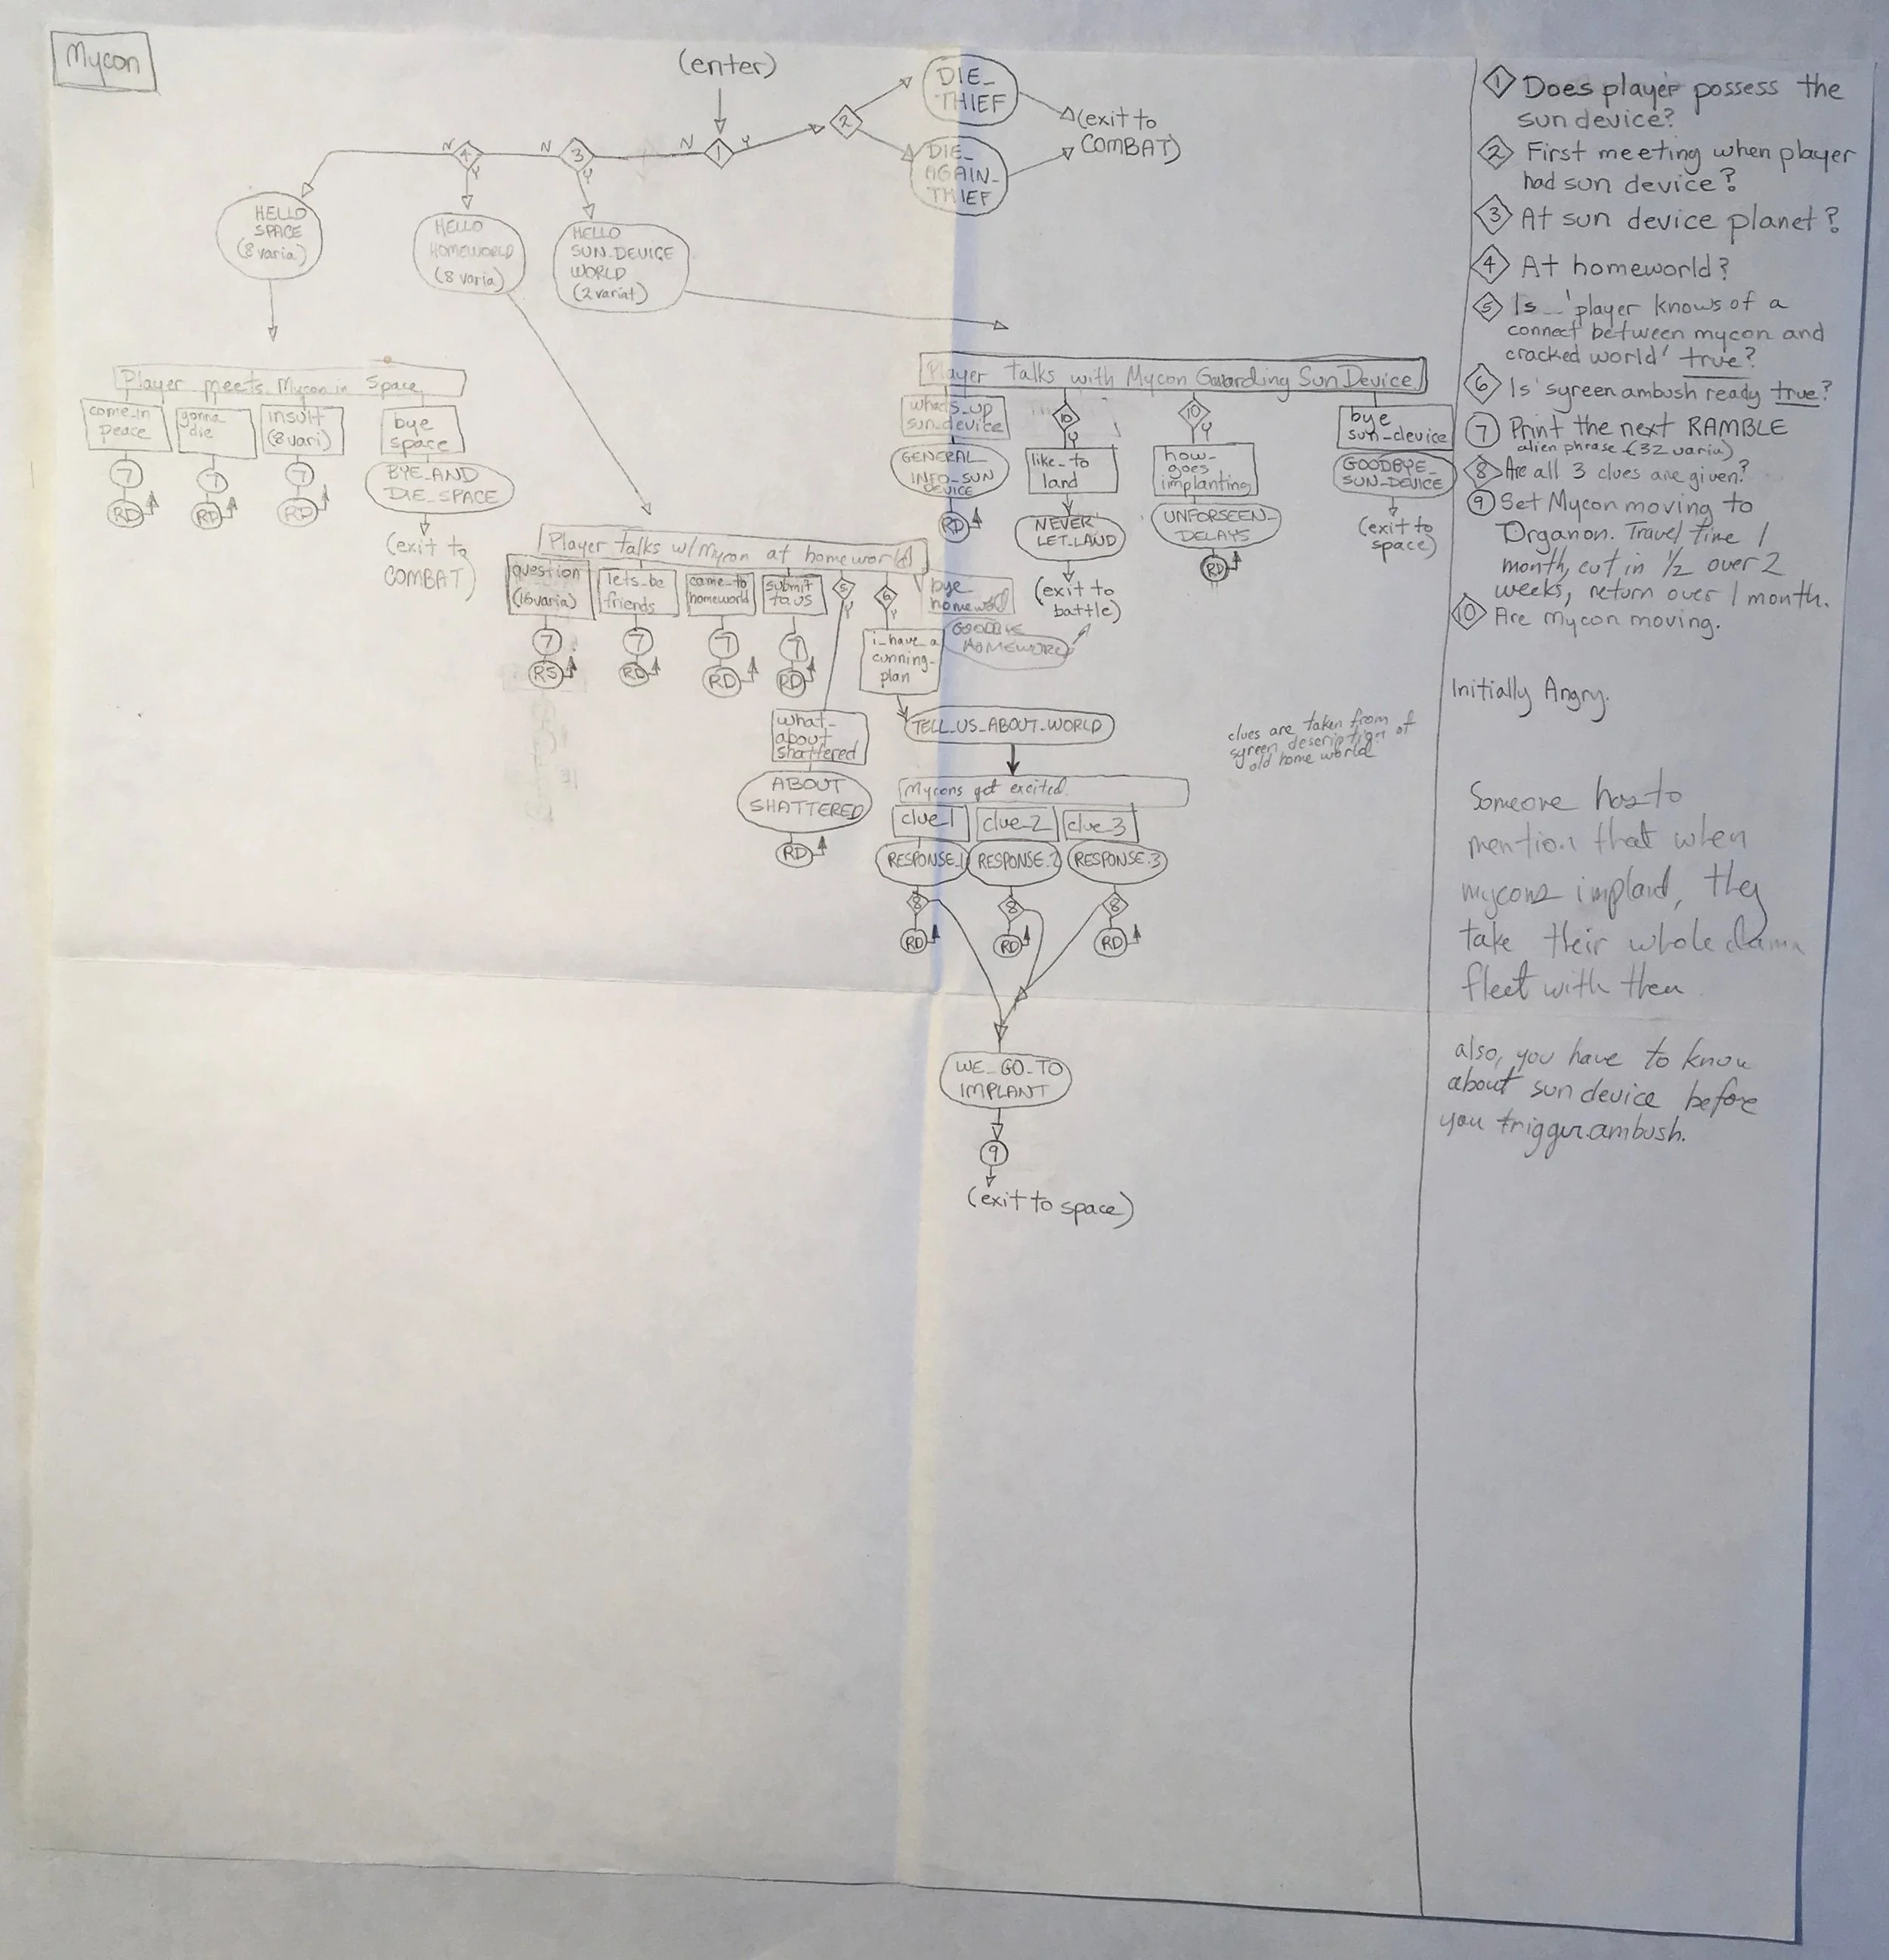 Mycon
(enter)
1
Y
N
2
DIE_
THIEF
DIE_
AGAIN_
THIEF
(exit to
COMBAT)
3
N
Y
4
N
Y
HELLO
SPACE
(8 varia)
HELLO
HOMEWORLD
(8 varia)
HELLO
SUN_DEVICE
WORLD
(2 variat)
Player meets Mycon in Space
come_in
peace
7
RD
gonna
die
7
RD
insult
(8 vari)
7
RD
bye
space
BYE_AND
DIE_SPACE
(exit to
COMBAT)
Player talks with Mycon Guarding Sun Device
whats_up
sun_device
GENERAL_
INFO_SUN
DEVICE
RD
10
Y
like_to
land
NEVER
LET_LAND
(exit to
battle)
10
Y
how_
goes
implanting
UNFORSEEN_
DELAYS
RD
bye
sun_device
GOODBYE_
SUN_DEVICE
(exit to
space)
Player talks w/Mycon at homeworld
question
(16 varia)
7
RS
lets_be
friends
7
RD
came_to
homeworld
7
RD
submit
to us
7
RD
5
Y
what_
about
shattered
ABOUT
SHATTERED
RD
6
Y
i_have_a
cunning_
plan
bye
homeworld
GOODBYE
HOMEWORLD
TELL_US_ABOUT_WORLD
Mycons get excited.
clue_1
clue_2
clue_3
RESPONSE_1
RESPONSE_2
RESPONSE_3
8
8
8
RD
RD
RD
WE_GO_TO
IMPLANT
9
(exit to space)
clues are taken from
syreen description of
old home world
1 Does player possess the
sun device?
2 First meeting when player
had sun device?
3 At sun device planet?
4 At homeworld?
5 Is 'player knows of a
connect between mycon and
cracked world' true?
6 Is syreen ambush ready true?
7 Print the next RAMBLE
alien phrase (32 varia)
8 Are all 3 clues are given?
9 Set Mycon moving to
Organon. Travel time 1
month, cut in 1/2 over 2
weeks, return over 1 month.
10 Are mycon moving.
Initially Angry.
Someone has to
mention that when
mycons implant, they
take their whole damn
fleet with them
also, you have to know
about sun device before
you trigger ambush.